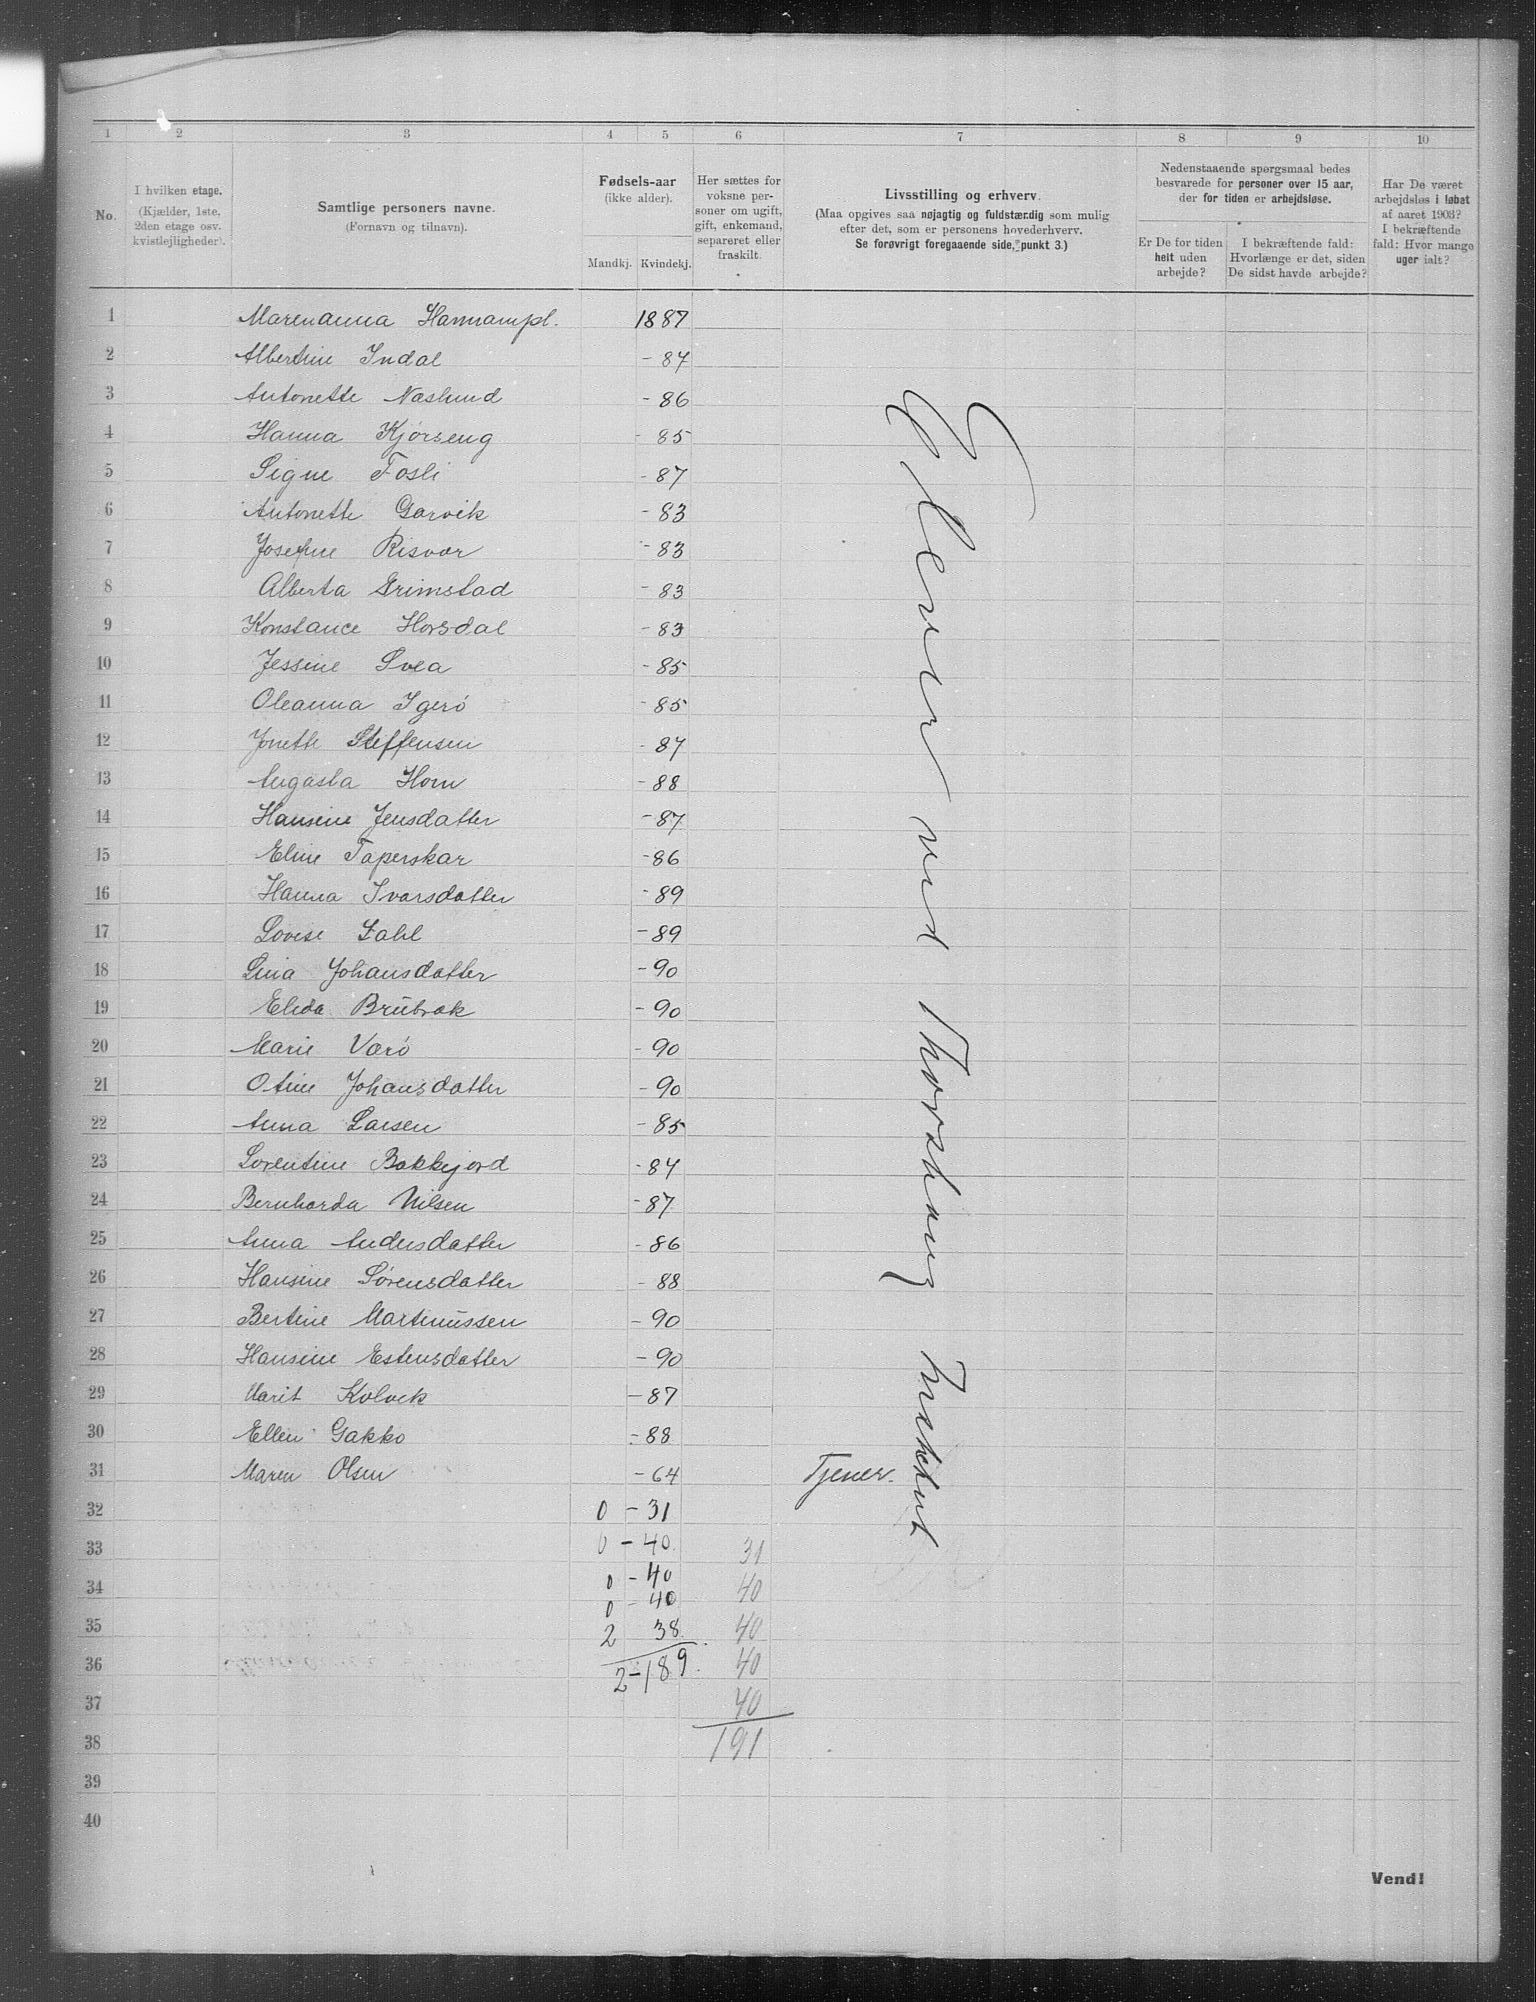 1 2 3 4 5 6 7 8 9 10
No.
I hvilken etage.
(Kjælder, 1ste,
2den etage osv.
kvistlejligheder).
Samtlige personers navne.
(Fornavn og tilnavn).
Fødsels-aar
(ikke alder).
Mandkj. Kvindekj.
Her sættes for
voksne per-
soner om ugift,
gift, enkemand,
separeret eller
fraskilt.
Livsstilling og erhverv.
(Maa opgives saa nøjagtig og fuldstændig som mulig
efter det, som er personens hovederhverv.
Se forøvrigt foregaaende side, punkt 3.)
Nedenstaaende spørgsmaal bedes
besvarede for personer over 15 aar,
der for tiden er arbejdsløse.
Er De for tiden
helt uden
arbejde?
I bekræftende fald:
Hvorlænge er det, siden
De sidst havde arbejde?
Har De været
arbejdsløs i løbet
af aaret 1903?
I bekræftende
fald: Hvor mange
uger ialt?
1 Marenanna Hannampl. 1887
2 Albertine Indal - 84
3 Antonette Næslund - 86
4 Hanna Kjørseng - 85
5 Signe Fosli - 87
6 Antonette Garvik - 83
7 Josefine Risvær - 83
8 Alberta Grimstad - 83
9 Konstance Horsdal - 83
10 Jessine Svea - 85
11 Oleanna Igerö - 85
12 Jonette Steffensen - 84
13 Augasta Horn - 88
14 Hansine Jensdatter - 87
15 Eline Taperskar - 86
16 Hanna Ivarsdatter - 89
17 Lovise Zahl - 89
18 Lina Johansdatter - 90
19 Elida Brubak - 90
20 Marie Værö - 90
21 Otine Johansdatter - 90
22 Anna Larsen - 85
23 Lorentine Bakkejord - 84
24 Bernharda Nilsen - 87
25 Anna Andersdatter - 86
26 Hansine Sørensdatter - 88
27 Bertine Martinussen - 90
28 Hansine Estensdatter - 90
29 Marit Kolvik - 87
30 Ellen Gakko - 88
31 Maren Olsen - 64 Tjener.
Elever ved Trondhjems
32 0 - 31
33 0 - 40 31
34 0 - 40 40
0 - 40
35 2 38 40
36 2 - 189 40
37 40
38 191
39
40
Vend!